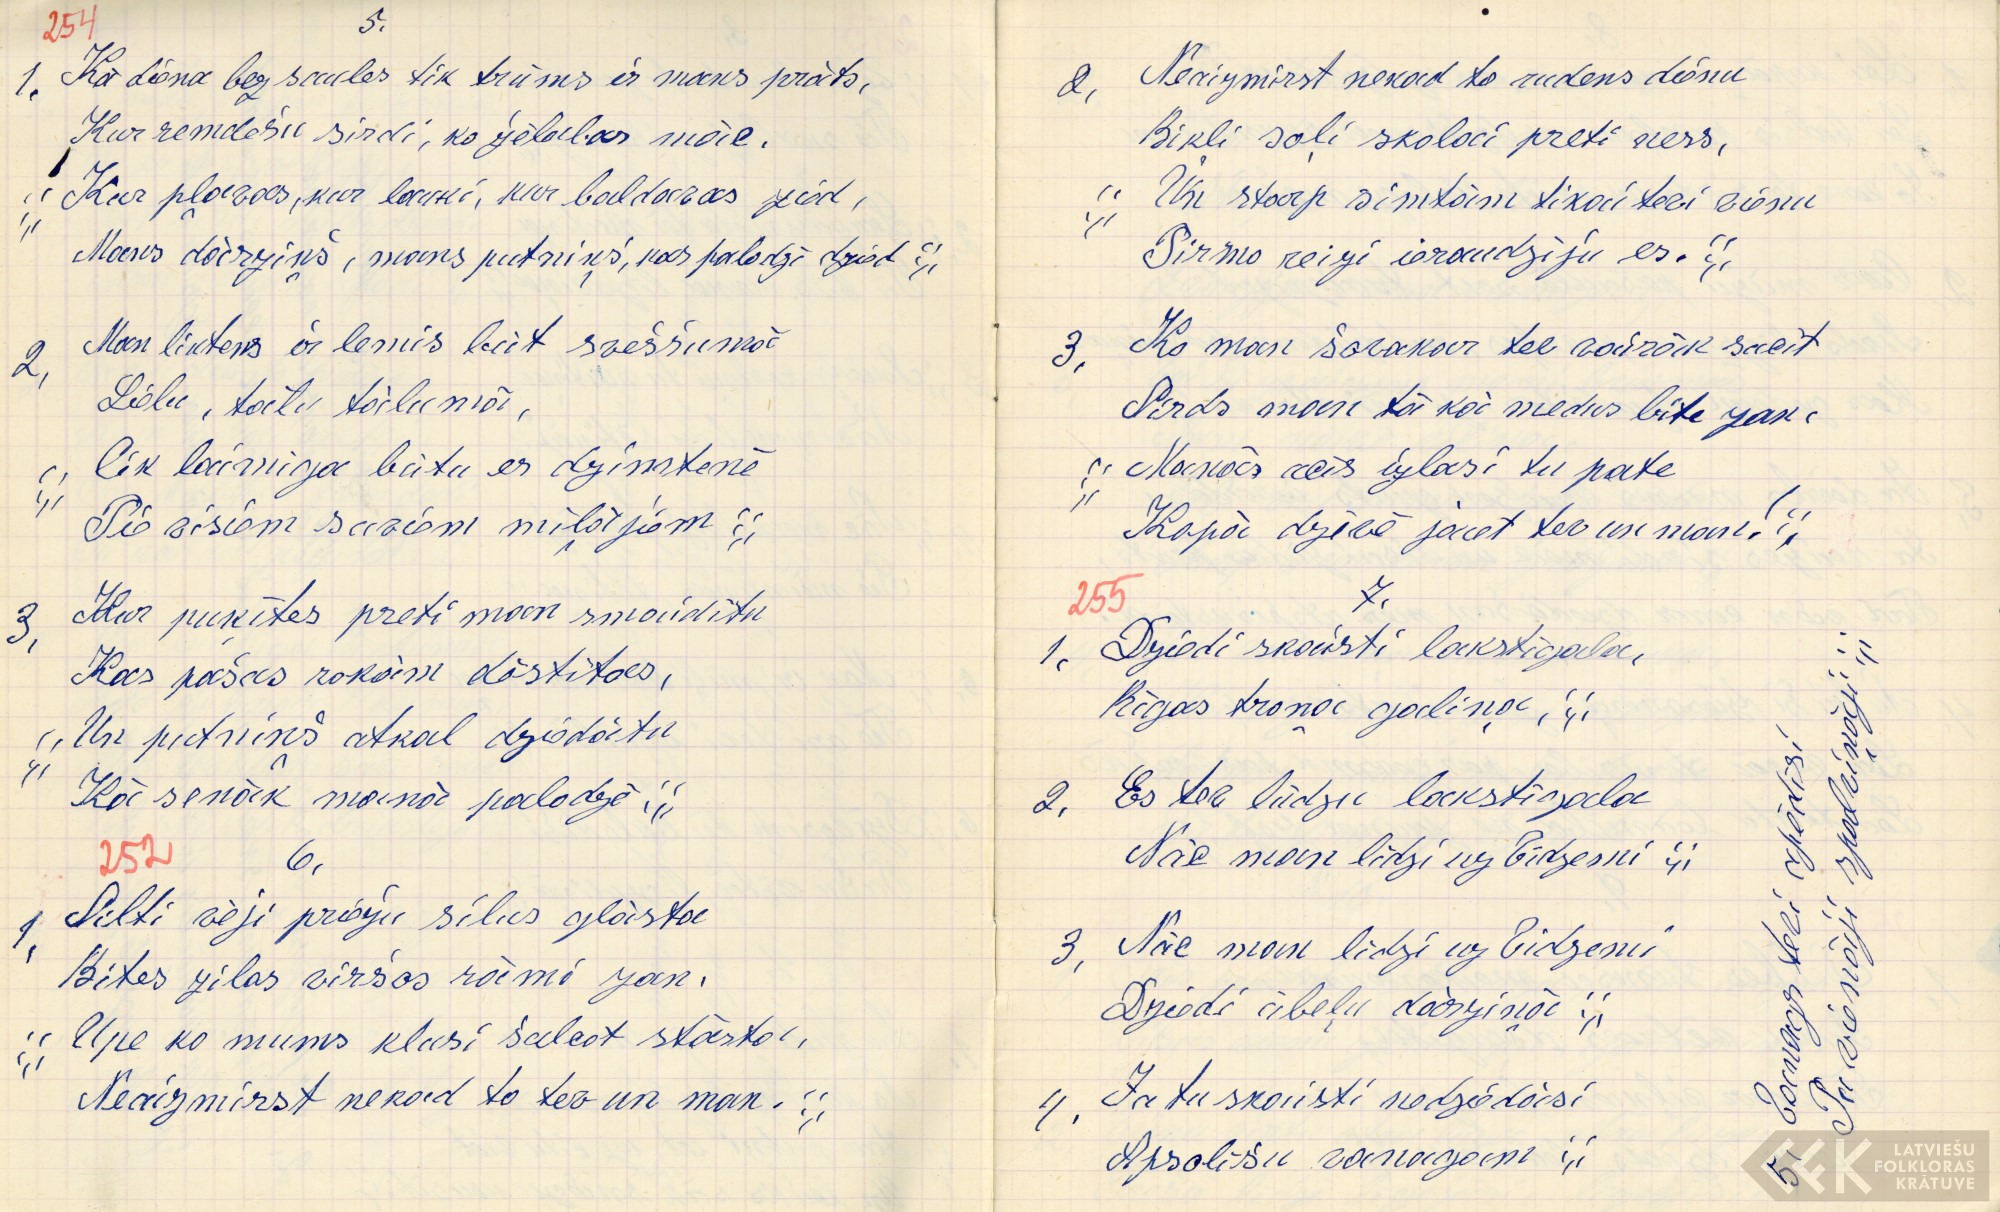 254
5.
1. Kā diena bez saules tik trūms ir mans prāts,
Kur remdēšu sirdi, ko žēlabas māc.
;; Kur pļavas, kur lauki, kur baldavas zied,
Mans dārziņš, mans putniņš, kas palodzī dzied ;;
2, Man liktens ir lemis būt svešumā
Lielu, tālu tālumā,
;; Cik laimīga būtu es dzimtenē
Pie visiem saviem mīļājiem ;;
3, Kur puķītes preti man smaidītu
Kas pašas rokām dēstītas,
;; Un putniņš atkal dziedātu
Kā senāk manā palodzē ;;
252
6.
1, Silti vēji priežu silus glāsta
Bites zilas viršos rāmi zan.
;; Upe ko mums klusi šalcot stāsta,
Neaizmirst nekad to tev un man. ;;
2, Neaizmirst nekad to rudens dienu
Bikli soļi skolai preti ness,
;; Un starp simtām tikai tevi vienu
Pirmo reizi ieraudzīju es. ;;
3, Ko man šovakar tev vairāk sacīt
Sirds man tā kā medus bite zan.
;; Manās acīs izlasi tu pate
Kopā dzīvē jāiet tev un man! ;;
255
7.
1, Dziedi skaisti lakstīgala,
Rīgas troņa galiņa, ;;
2, Es tev lūdzu lakstīgala
Nāc man līdzi uz Vidzemi ;;
3, Nāc man līdzi uz Vidzemi
Dziedi ābeļu dārziņā ;;
4, Ja tu skaisti nedziedāsi
Apsolīšu vanagam ;;
5, Vanags tevi apēdīsi
Pa vienāji spalviņāji ;;
LATVIEŠU
FOLKLORAS
KRĀTUVE